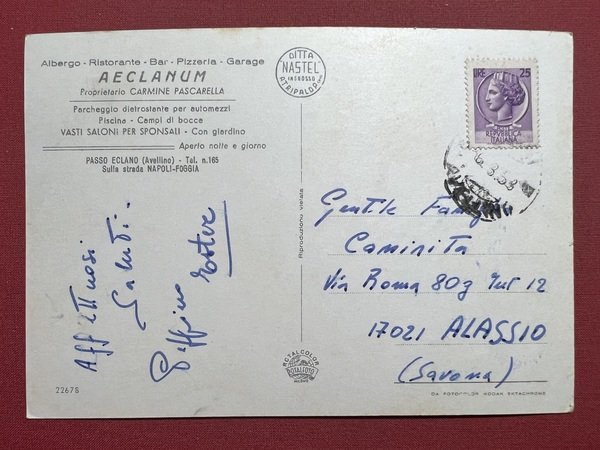 Albergo - Ristorante - Bar - Pizzeria - Garage
AECLANUM
Proprietario CARMINE PASCARELLA
Parcheggio dietrostante per automezzi
Piscina - Campi di bocce
VASTI SALONI PER SPONSALI - Con giardino
Aperto notte e giorno
PASSO ECLANO (Avellino) - Tel. n.165
Sulla strada NAPOLI-FOGGIA
DITTA
"NASTEL"
INGROSSO
ATRIPALDA
LIRE 25
REPUBBLICA
ITALIANA
Affettuosi
Saluti.
Peppino Ester
Riproduzione vietata
Gentile Fam
Caminita
Via Roma 80 Int 12
17021 ALASSIO
(Savona)
ROTALCOLOR
ROTALFOTO
MILANO
22678
DA FOTOCOLOR KODAK EKTACHROME